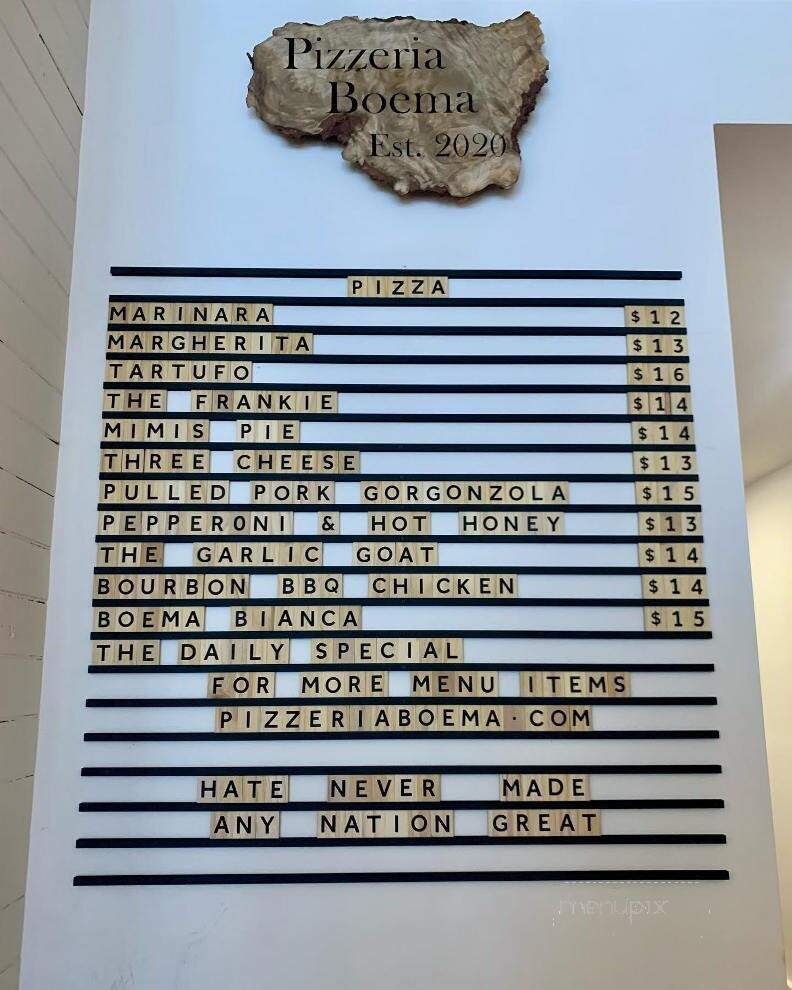 Pizzeria
Boema
Est. 2020
PIZZA
MARINARA $12
MARGHERITA $13
TARTUFO $16
THE FRANKIE $14
MIMIS PIE $14
THREE CHEESE $13
PULLED PORK GORGONZOLA $15
PEPPERONI & HOT HONEY $13
THE GARLIC GOAT $14
BOURBON BBQ CHICKEN $14
BOEMA BIANCA $15
THE DAILY SPECIAL
FOR MORE MENU ITEMS
PIZZERIABOEMA·COM
HATE NEVER MADE
ANY NATION GREAT
menupix